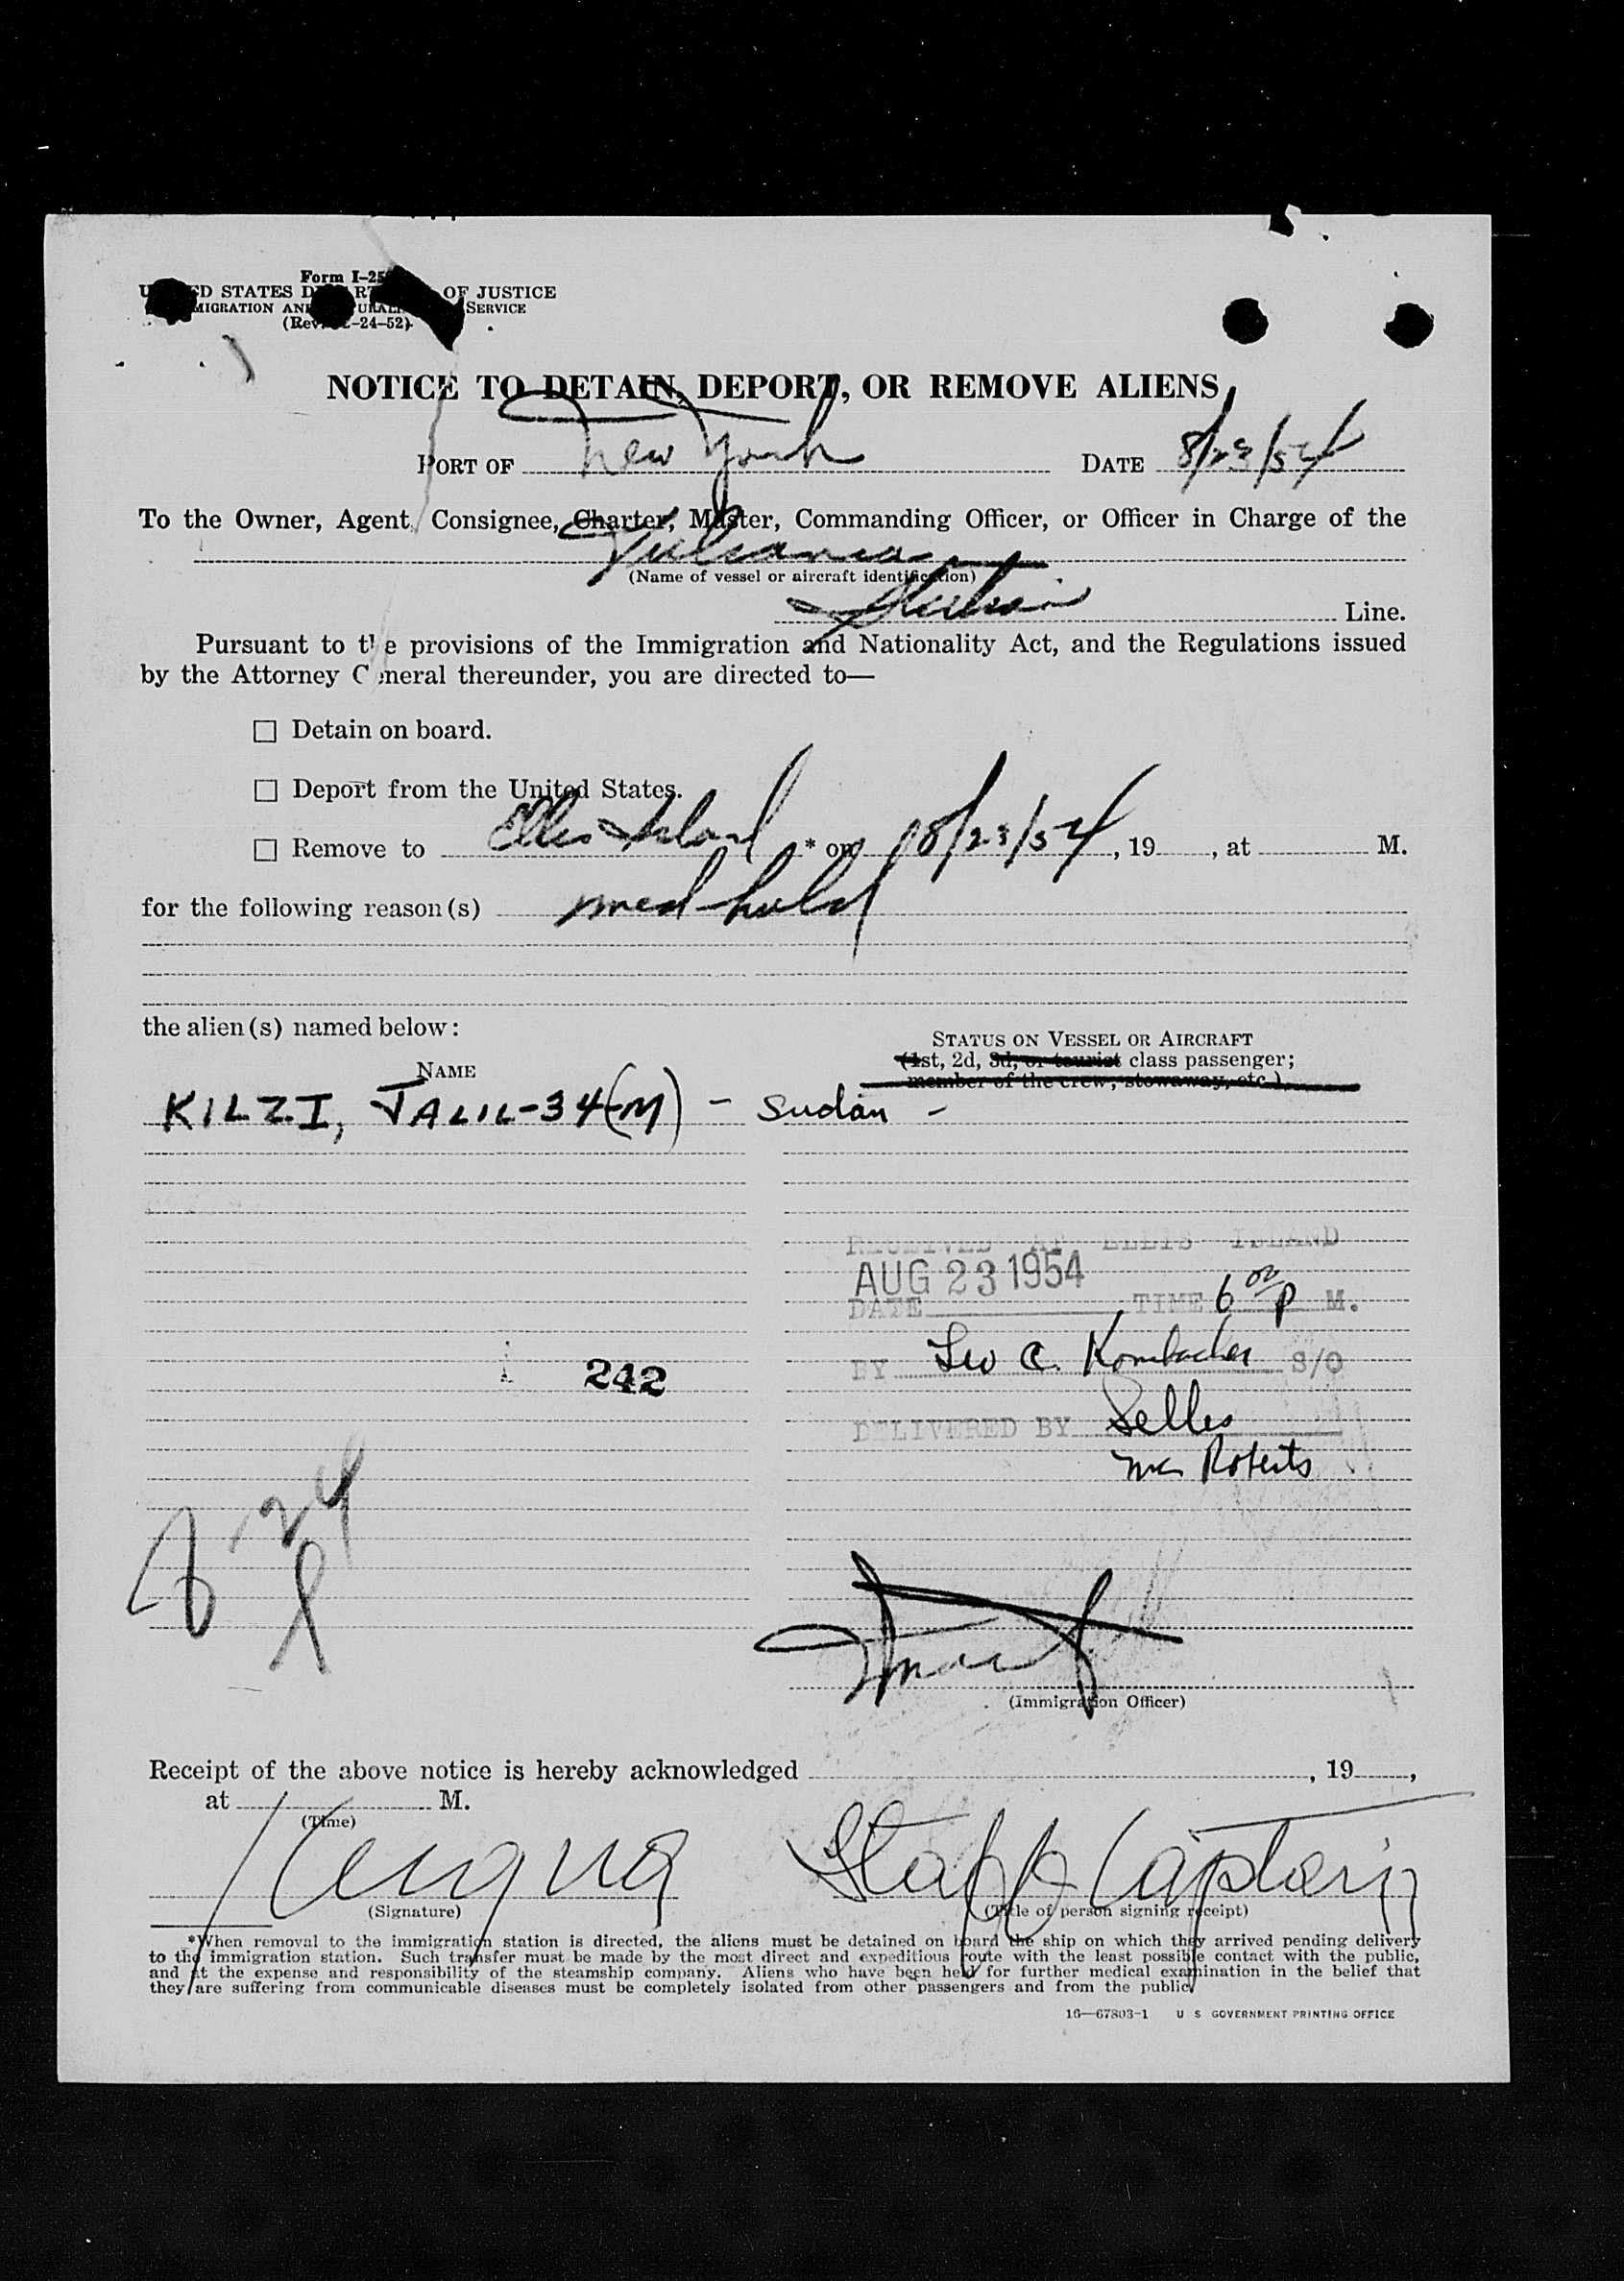 Form I-25
UNITED STATES DEPARTMENT OF JUSTICE
IMMIGRATION AND NATURALIZATION SERVICE
(Rev. -24-52)
NOTICE TO DETAIN, DEPORT, OR REMOVE ALIENS
PORT OF New York DATE 8/23/54
To the Owner, Agent, Consignee, Charter, Master, Commanding Officer, or Officer in Charge of the
Vulcania
(Name of vessel or aircraft identification)
Line.
Pursuant to the provisions of the Immigration and Nationality Act, and the Regulations issued
by the Attorney General thereunder, you are directed to—
☐ Detain on board.
☐ Deport from the United States.
☐ Remove to Ellis Island * on 8/23/54, 19, at M.
for the following reason(s) med-hold
the alien(s) named below:
STATUS ON VESSEL OR AIRCRAFT
(1st, 2d, 3d, or tourist class passenger;
member of the crew; stowaway, etc.)
NAME
KILZI, JALIL-34(M) - Sudan -
RECEIVED AT ELLIS ISLAND
AUG 23 1954
DATE TIME 6 00 P M.
BY Leo C. Kornbacher S/O
242
DELIVERED BY Selles
Roberts
8-24
(Immigration Officer)
Receipt of the above notice is hereby acknowledged , 19 ,
at M.
(Time)
Staff Captain
(Signature) (Title of person signing receipt)
*When removal to the immigration station is directed, the aliens must be detained on board the ship on which they arrived pending delivery
to the immigration station. Such transfer must be made by the most direct and expeditious route with the least possible contact with the public,
and at the expense and responsibility of the steamship company. Aliens who have been held for further medical examination in the belief that
they are suffering from communicable diseases must be completely isolated from other passengers and from the public.
16—67803-1 U S GOVERNMENT PRINTING OFFICE